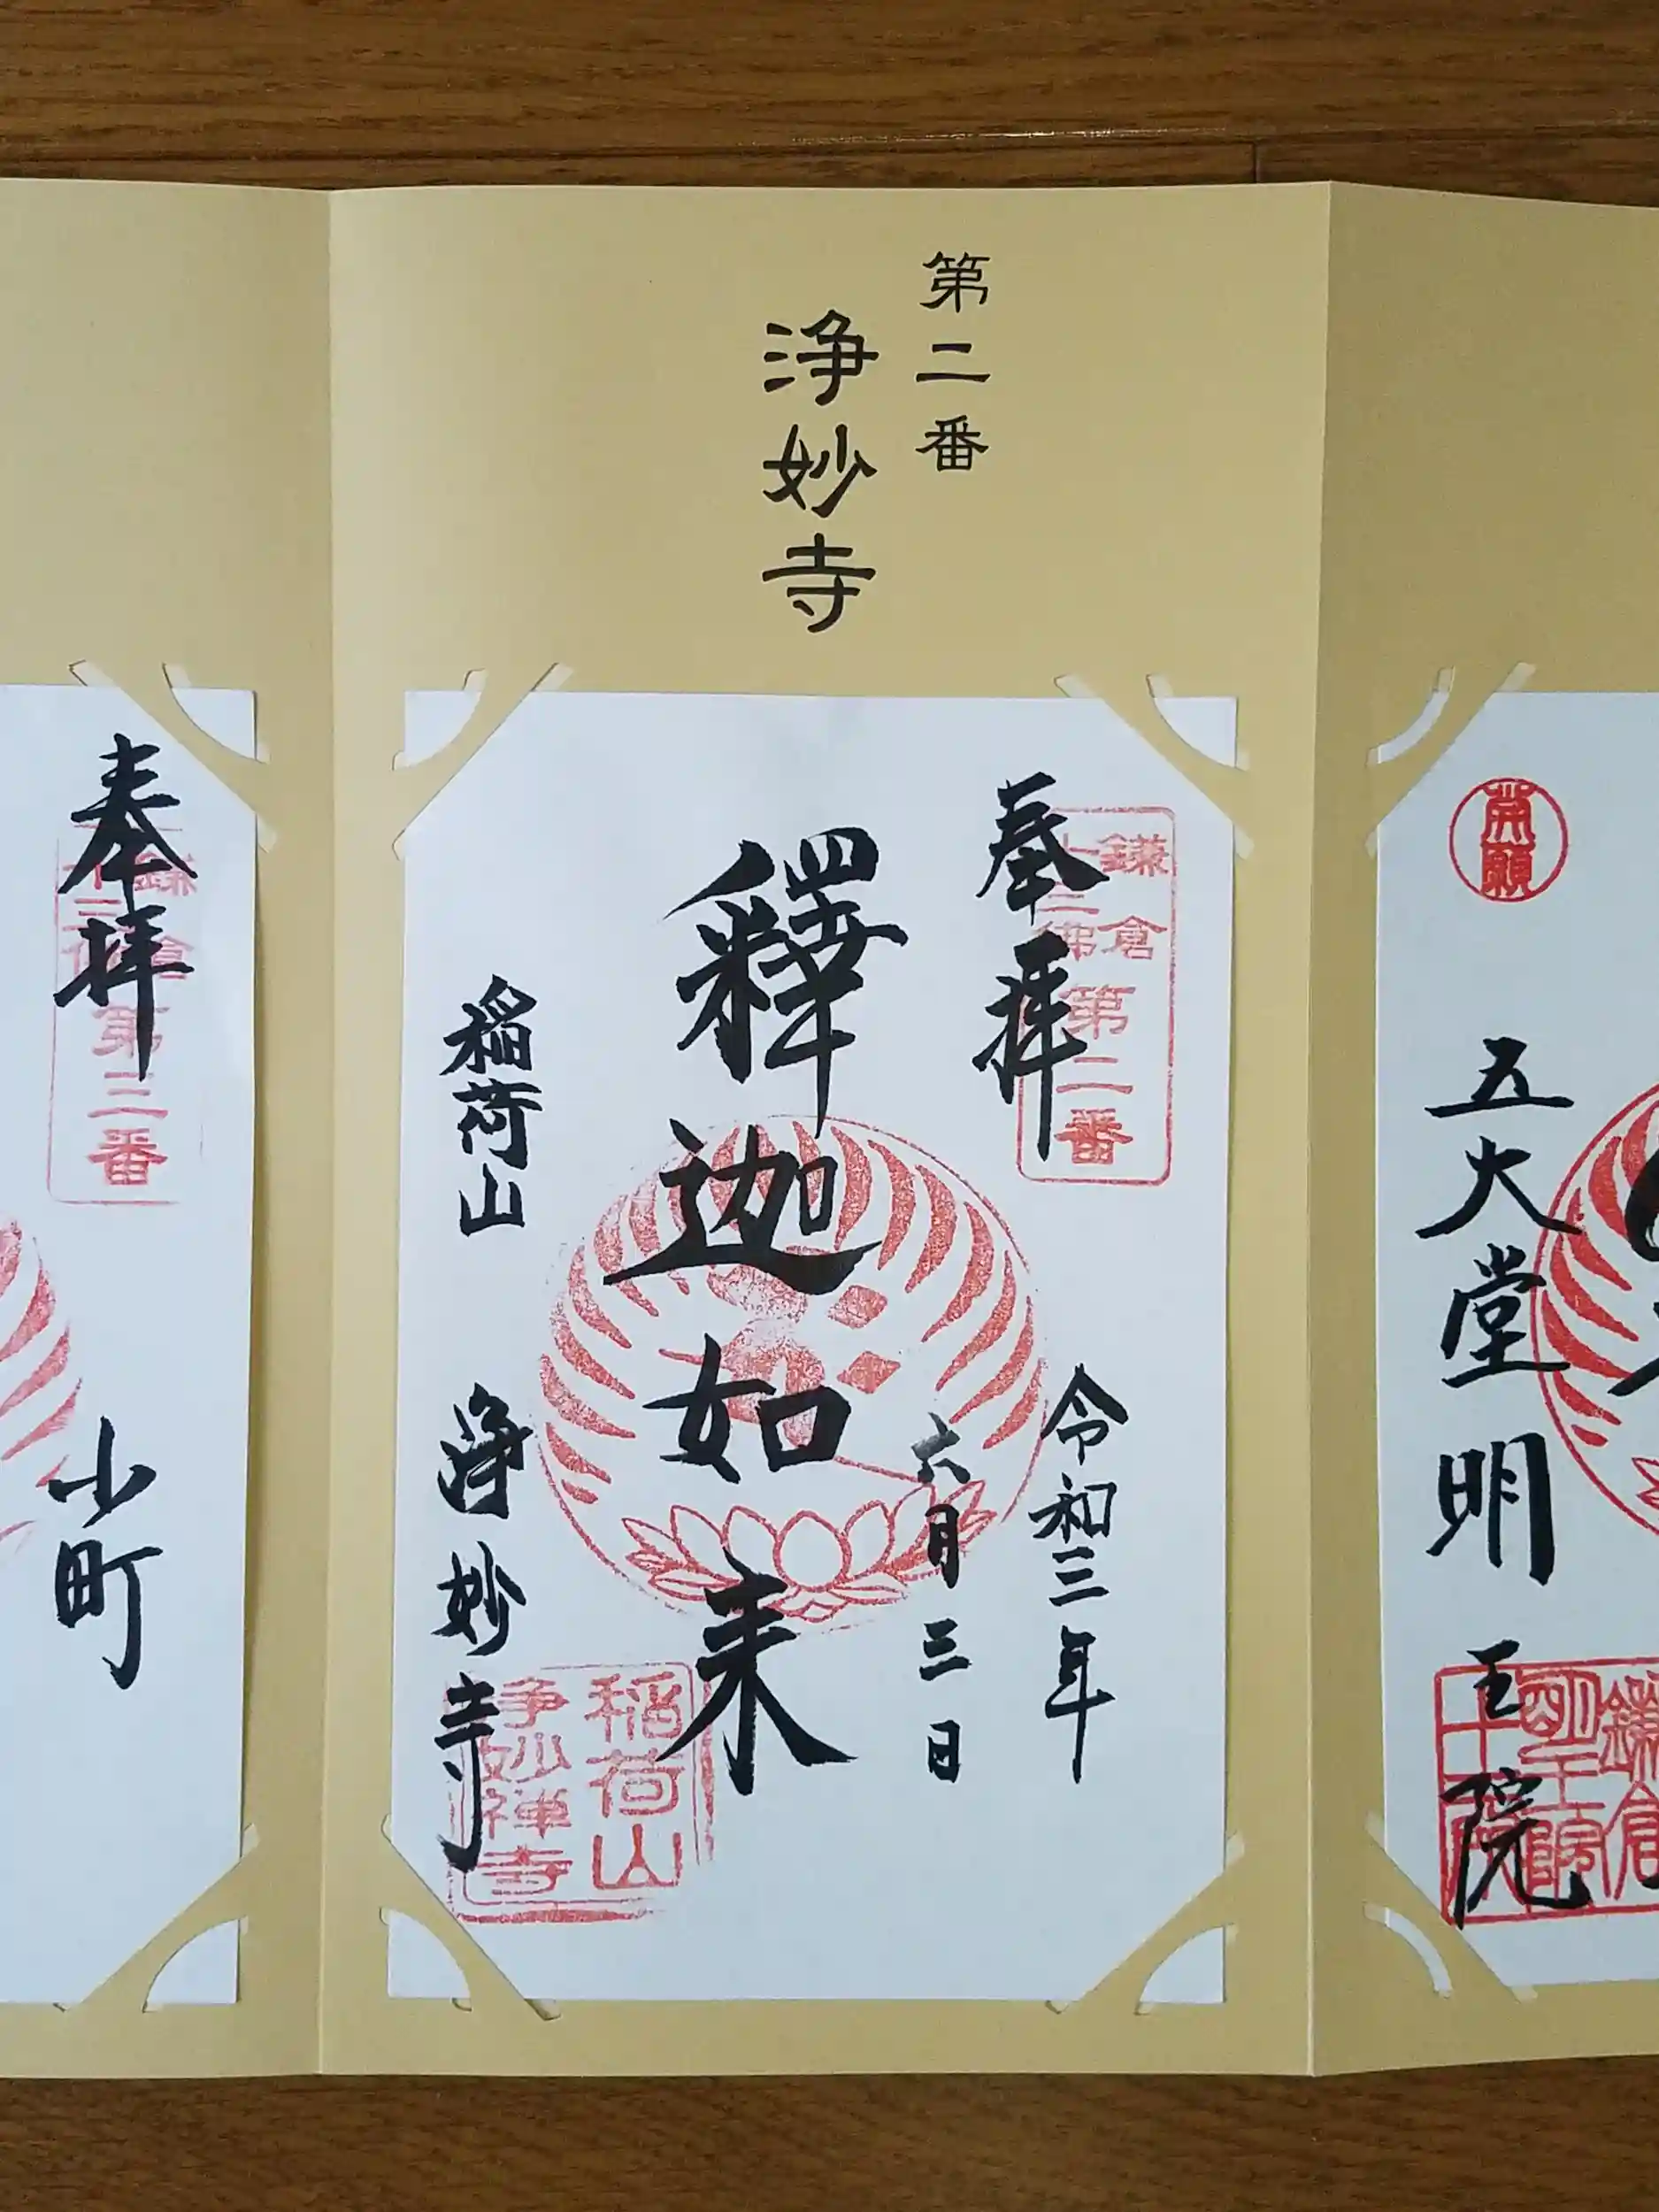 第二番
浄妙寺
開願
五大堂明王院
奉拝
鎌倉
十三佛
第二番
令和三年
六月三日
釋迦如来
稲荷山
浄妙寺
稲荷山
浄妙禅寺
奉拝
鎌倉
十三佛
第三番
小町